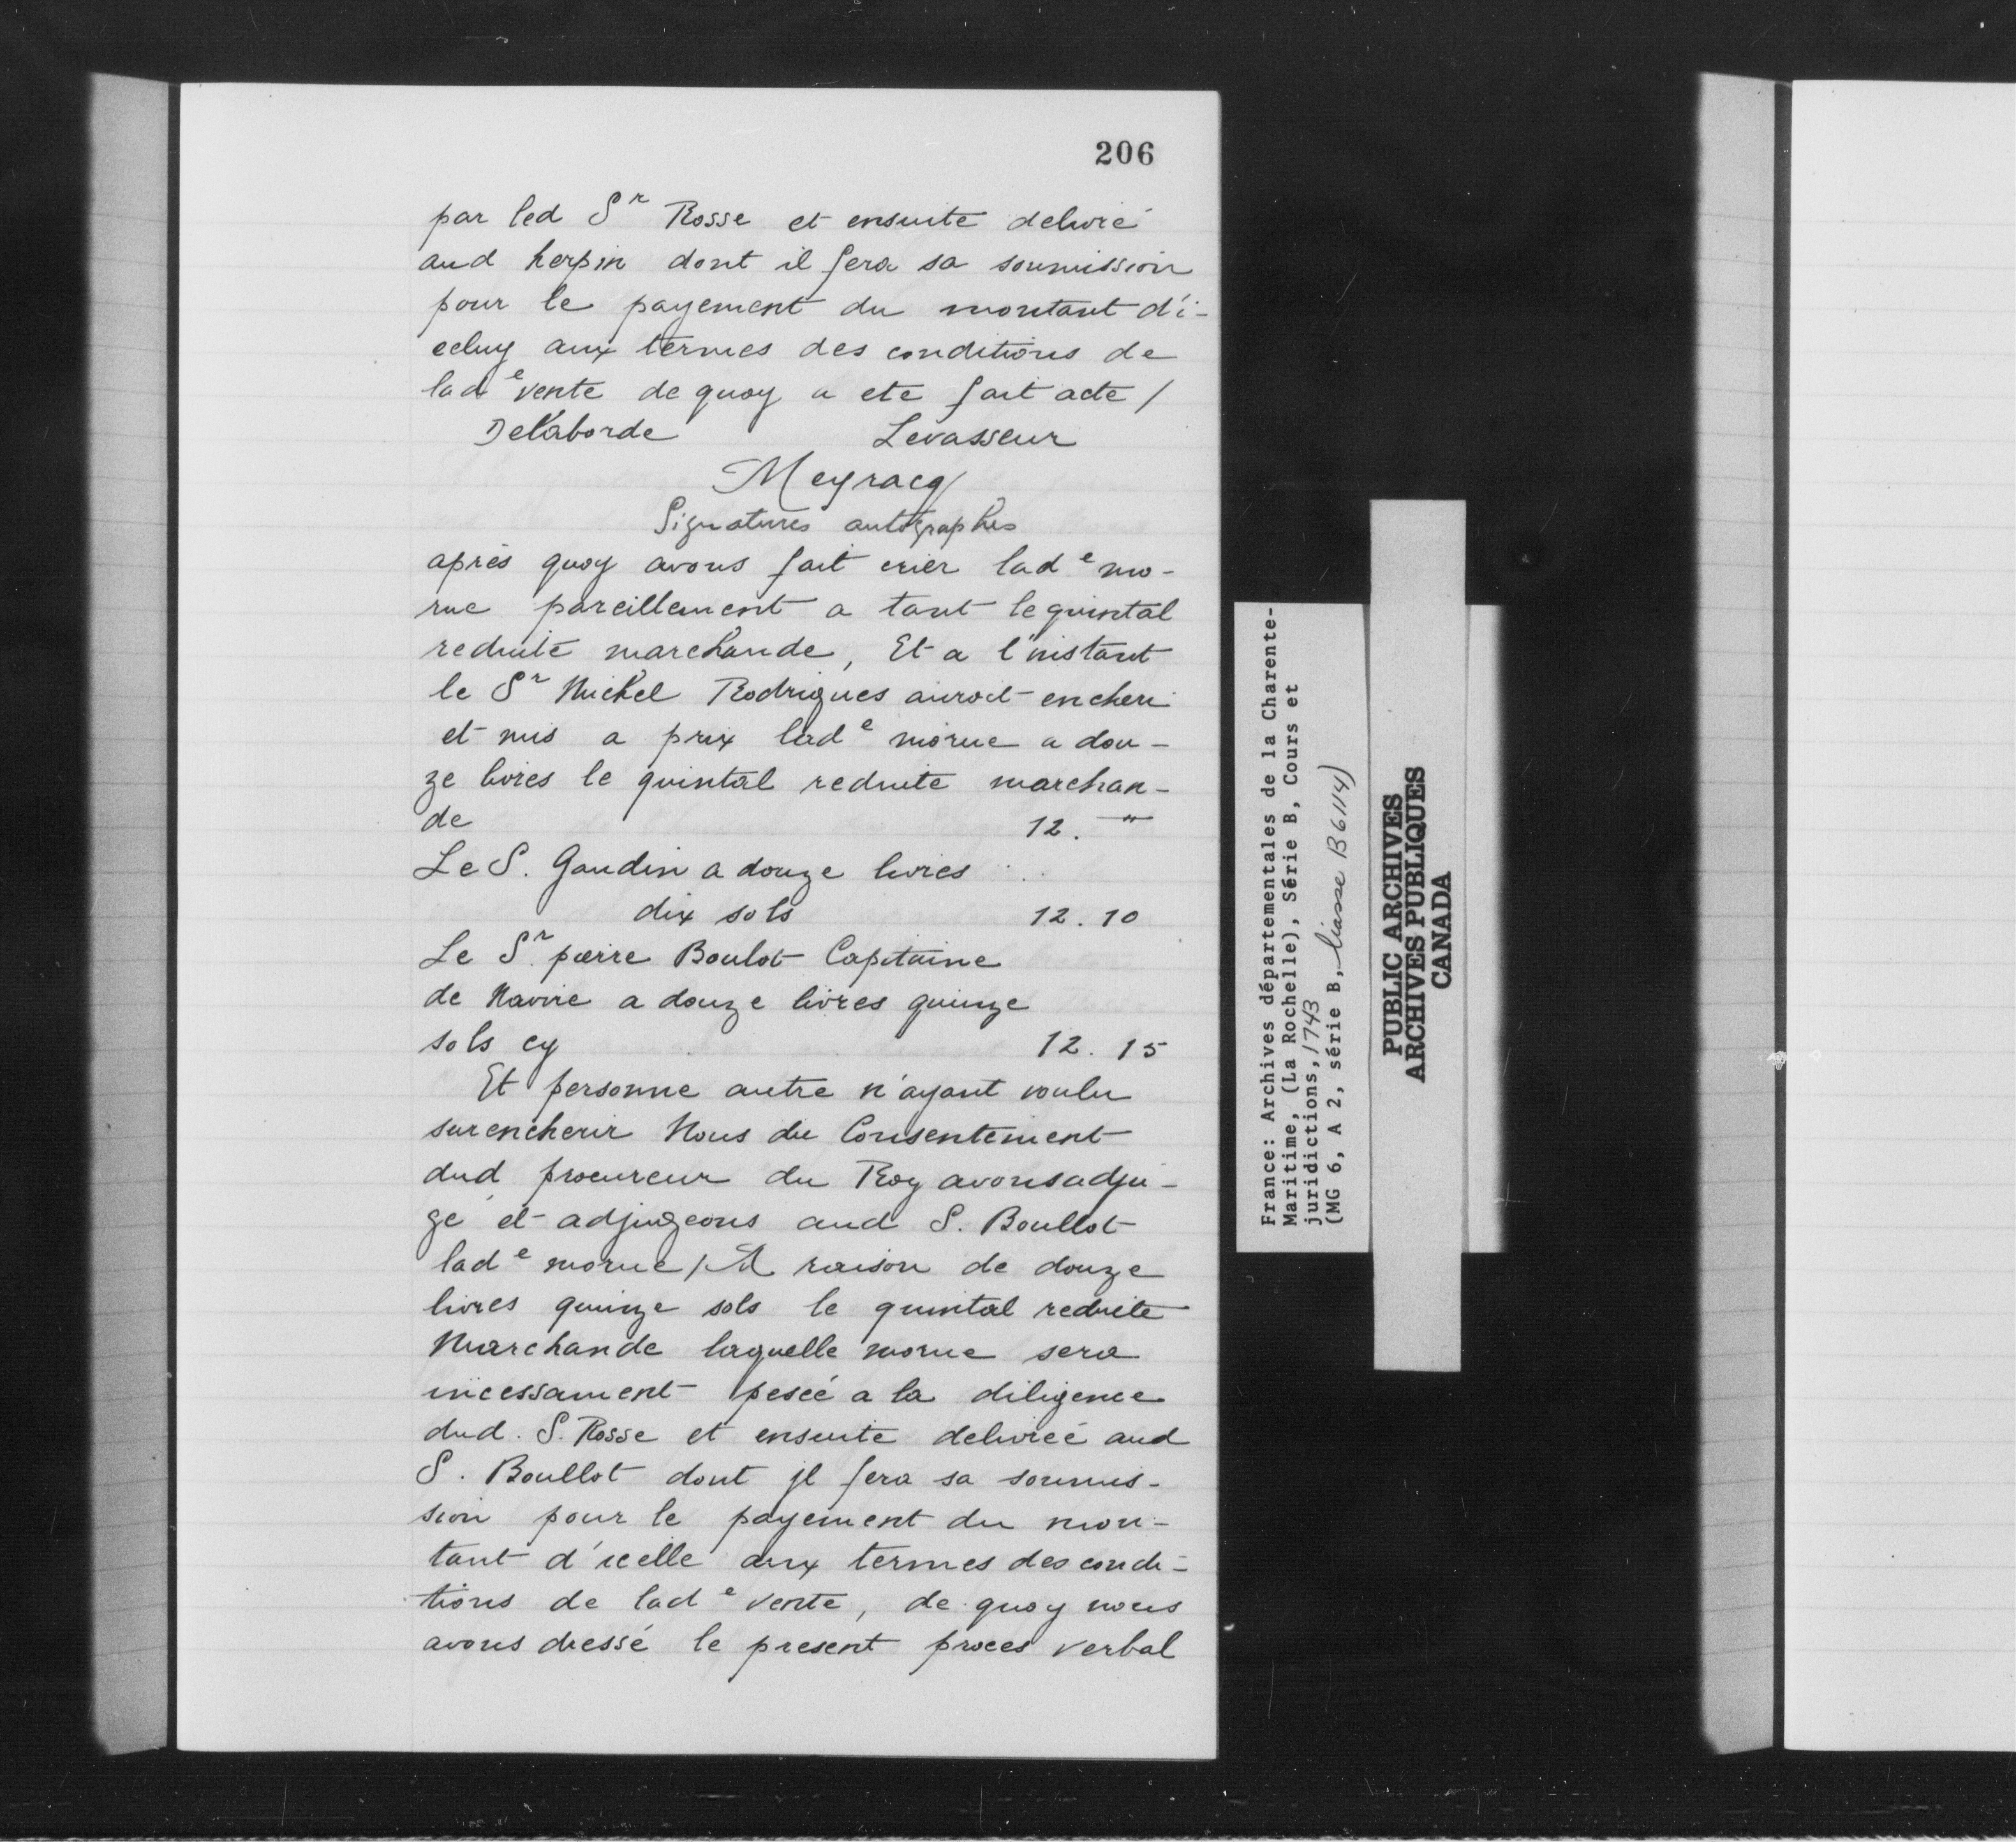 206
par led Sr Rosse et ensuite delivré
aud herpin dont il fera sa soumission
pour le payement du montant d'i-
celuy aux termes des conditions de
lade vente de quoy a ete fait acte /
Delaborde Levasseur
Meyracq
Signatures autographes
après quoy avons fait crier lade mo-
rue pareillement a tant le quintal
reduite marchande, Et a l'instant
le Sr Michel Rodrigues auroit encheri
et mis a prix lade morue a dou-
ze livres le quintal reduite marchan-
de 12. "
Le S. Gaudin a douze livres
dix sols 12. 10
Le Sr. pierre Boulot Capitaine
de Navire a douze livres quinze
sols cy 12. 15
Et personne autre n'ayant voulu
surencherir Nous du Consentement
dud procureur du Roy avons adju-
gé et adjugeons aud S. Boullot
lade morue / A raison de douze
livres quinze sols le quintal reduite
Marchande laquelle morue sera
incessament peseé a la diligence
dud. S. Rosse et ensuite delivreé aud
S. Boullot dont jl fera sa soumis-
sion pour le payement du mon-
tant d'icelle aux termes des condi-
tions de lade vente, de quoy nous
avons dressé le present proces verbal
France: Archives départementales de la Charente-
Maritime, (La Rochelle), Série B, Cours et
juridictions, 1743
(MG 6, A 2, série B, liasse B 6114)
PUBLIC ARCHIVES
ARCHIVES PUBLIQUES
CANADA